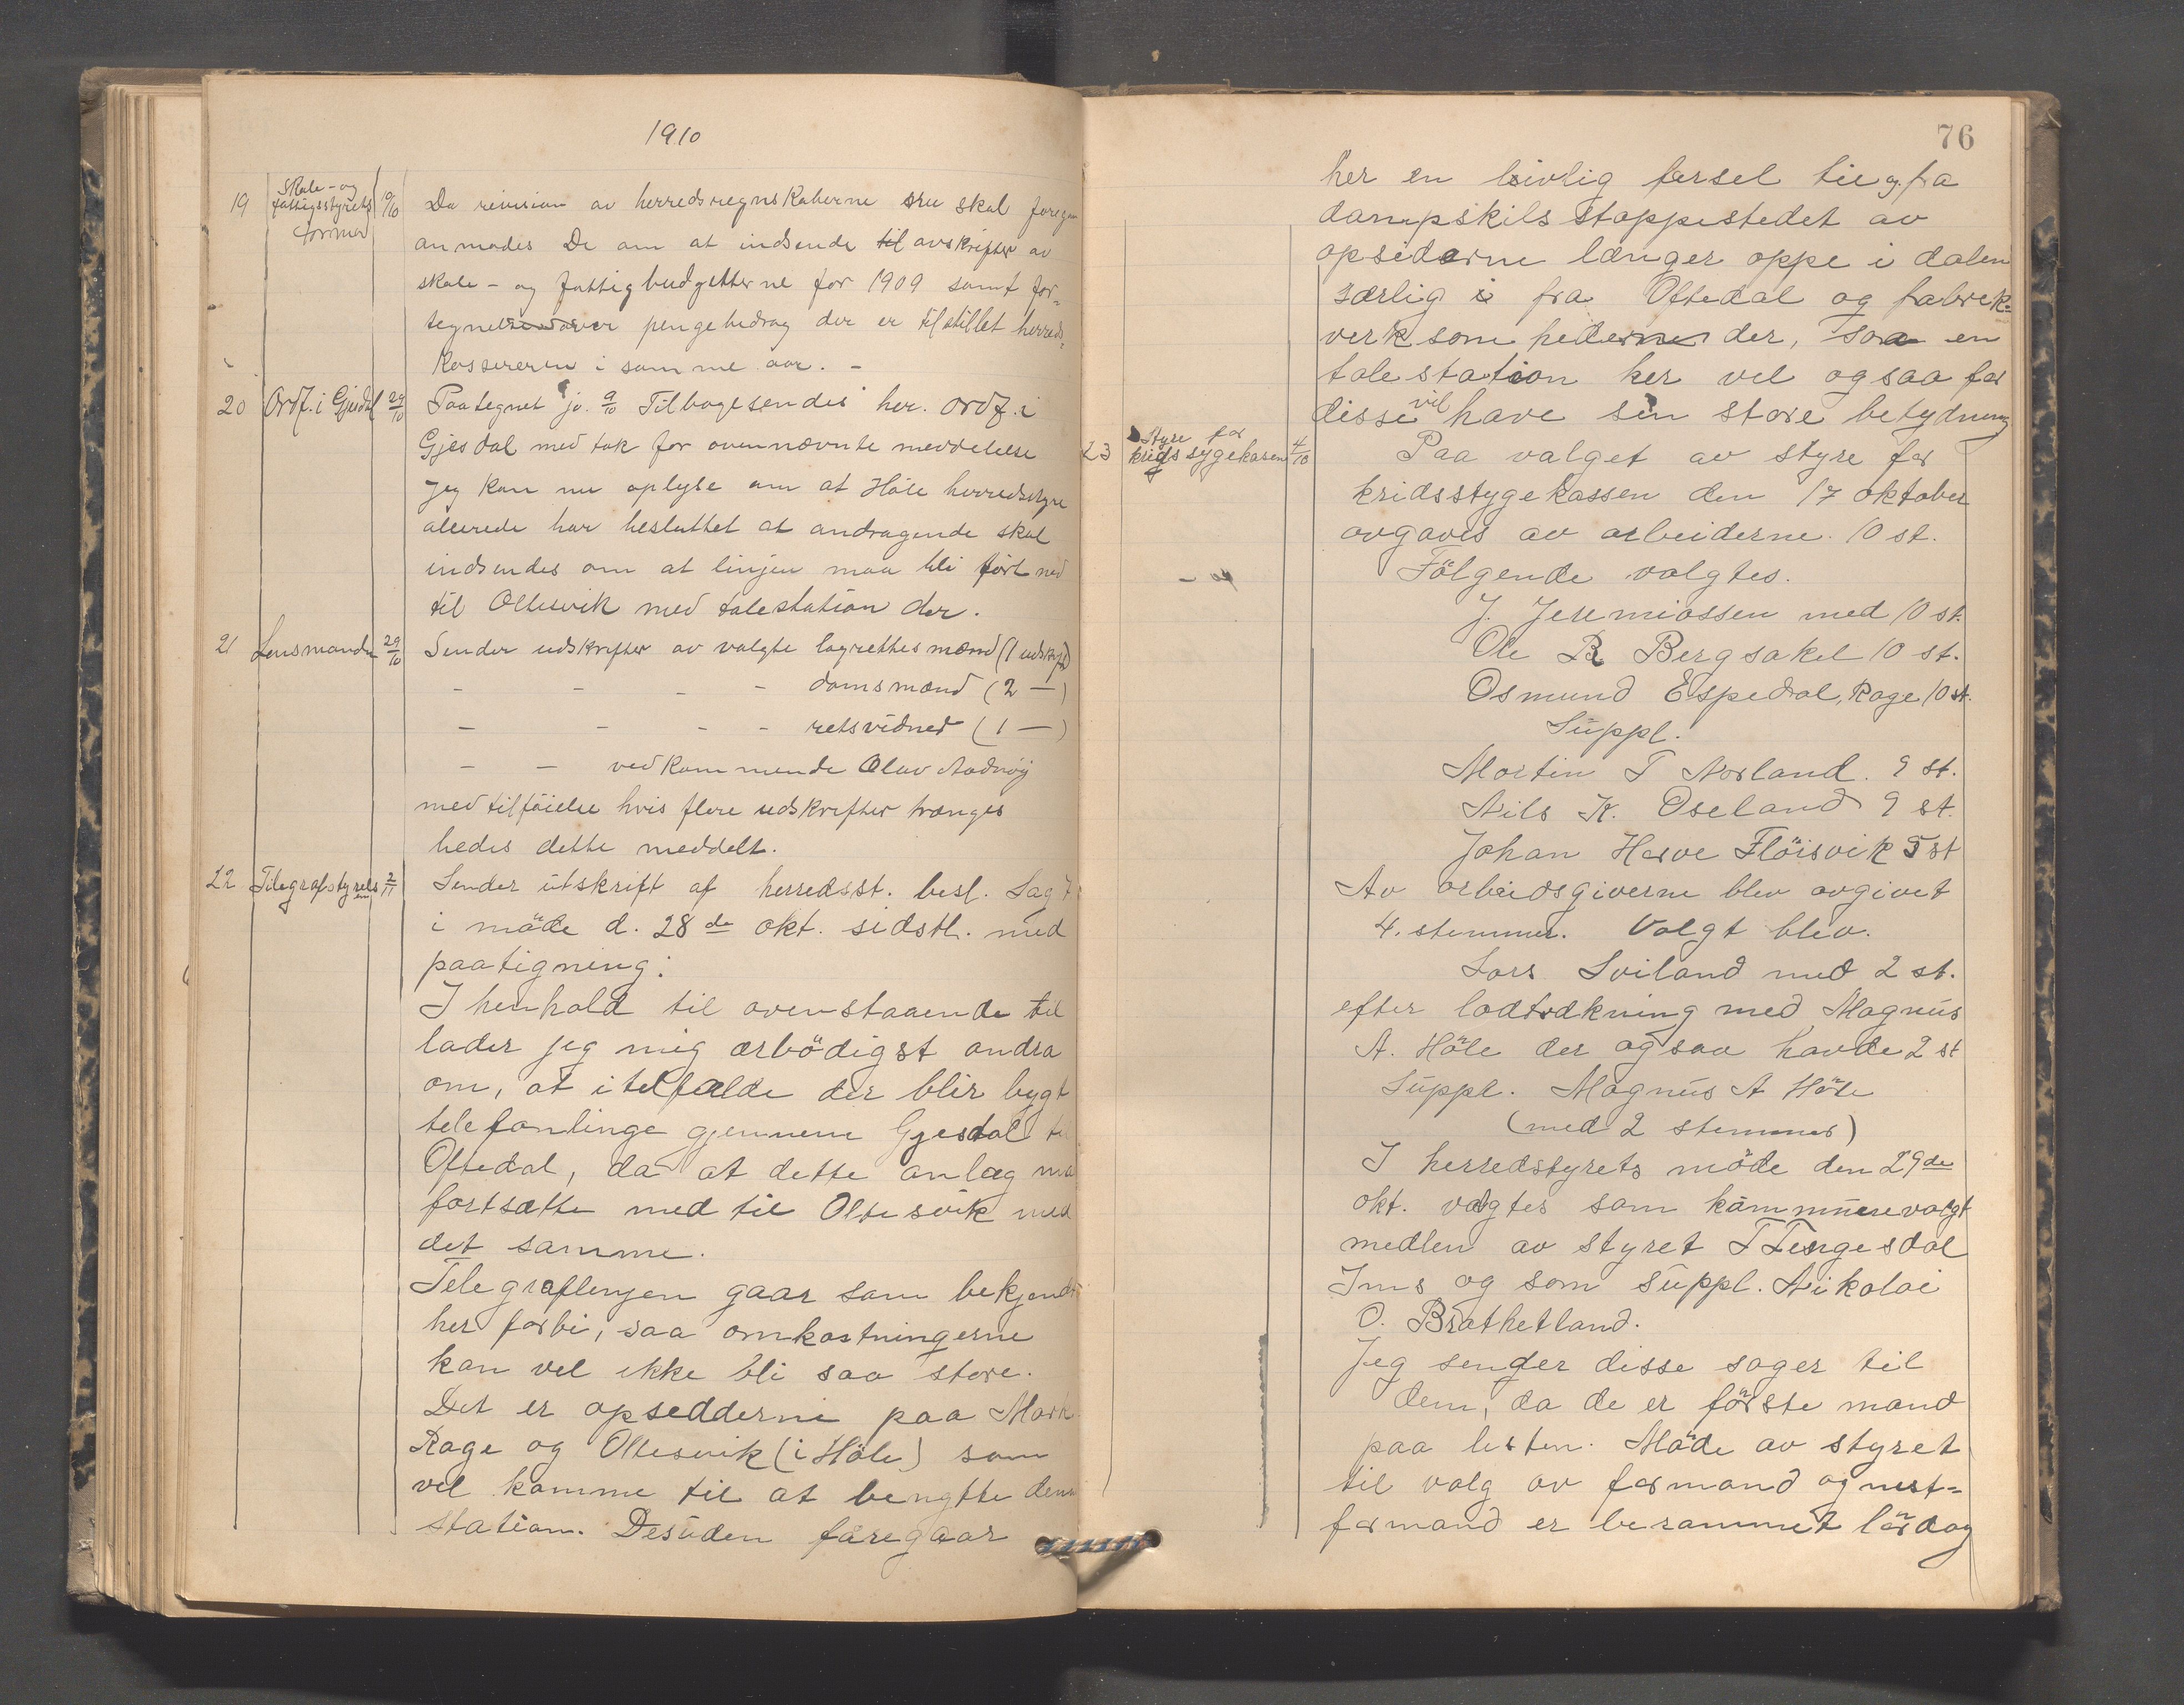 1910
19 Skole- og fattigstyrets formænd 9/10 Da revision av herredsregnskaberne snu skal foregaa
anmodes De om at indsende til avskrifter av
skole- og fattigbudgetterne for 1909 samt for-
tegnelse over pengebedrag der er tilstillet herreds-
kassereren i samme aar. -
20 Ordf. i Gjesdal 29/10 Paategnet jo. 9/10 Tilbagesendes her. ordf. i
Gjesdal med tak for ovennævnte meddelelse
Jeg kan nu oplyse om at Höle herredsstyre
allerede har besluttet at andragende skal
indsendes om at linjen maa bli fört ned
til Oltesvik med talestation der.
21 Lensmanden 29/10 Sender udskrifter av valgte lagrettesmænd (1 udskrift)
- - - - domsmænd (2 —)
- - - - retsvidner (1 —)
- - vedkommende Olav Aadnöy
med tilföielse hvis flere udskrifter trænges
bedes dette meddelt.
22 Telegrafstyrelsen 2/11 Sender utskrift af herredsst. besl. Sag 7
i möde d. 28de okt. sidstl. med
paategning:
I henhold til ovenstaaende til
lader jeg mig ærbödigst andra
om, at i tilfælde der blir bygt
telefonlinge gjennem Gjesdal til
Oftedal, da at dette anlæg maa
fortsætte ned til Oltesvik med
det samme.
Telegraflinjen gaar som bekjendt
her forbi, saa omkostningerne
kan vel ikke bli saa store.
Det er opsedderne paa Mork
Rage og Oltesvik (i Höle) som
vil komme til at bengtte denne
station. Desuden foregaar
76
her en livlig færsel til og fra
dampskibsstoppestedet av
opsiderne længer oppe i dalen
særlig fra Oftedal og fabrik-
verksomhederne der, saa en
talestation her vel ogsaa for
disse vil have sin store betydning
23 Styre for kridssygekassen 4/10 Paa valget av styre for
kridsstygekassen den 17 oktober
avgaves av arbeiderne 10 st.
Fölgende valgtes.
J. Jeremiassen med 10 st.
Ole R Bergsakel 10 st.
Osmund Espedal, Rage 10 st.
Suppl.
Martin T Norland. 9 st.
Nils K. Oseland 9 st.
Johan Herve Flöisvik 5 st
Av arbeidsgiverne blev avgivet
4. stemmer. Valgt blev.
Lars Sviland med 2 st.
efter lodtrækning med Magnus
A. Höle der ogsaa havde 2 st
Suppl. Magnus A Höle
(med 2 stemmer)
I herredstyrets möde den 29de
okt. valgtes som kommunevalgt
medlem av styret T Tengesdal
Ims og som suppl. Nikolai
O. Bráthetland.
Jeg sender disse sager til
dem, da de er förste mand
paa listen. Möde av styret
til valg av formand og nest-
formand er berammet lördag